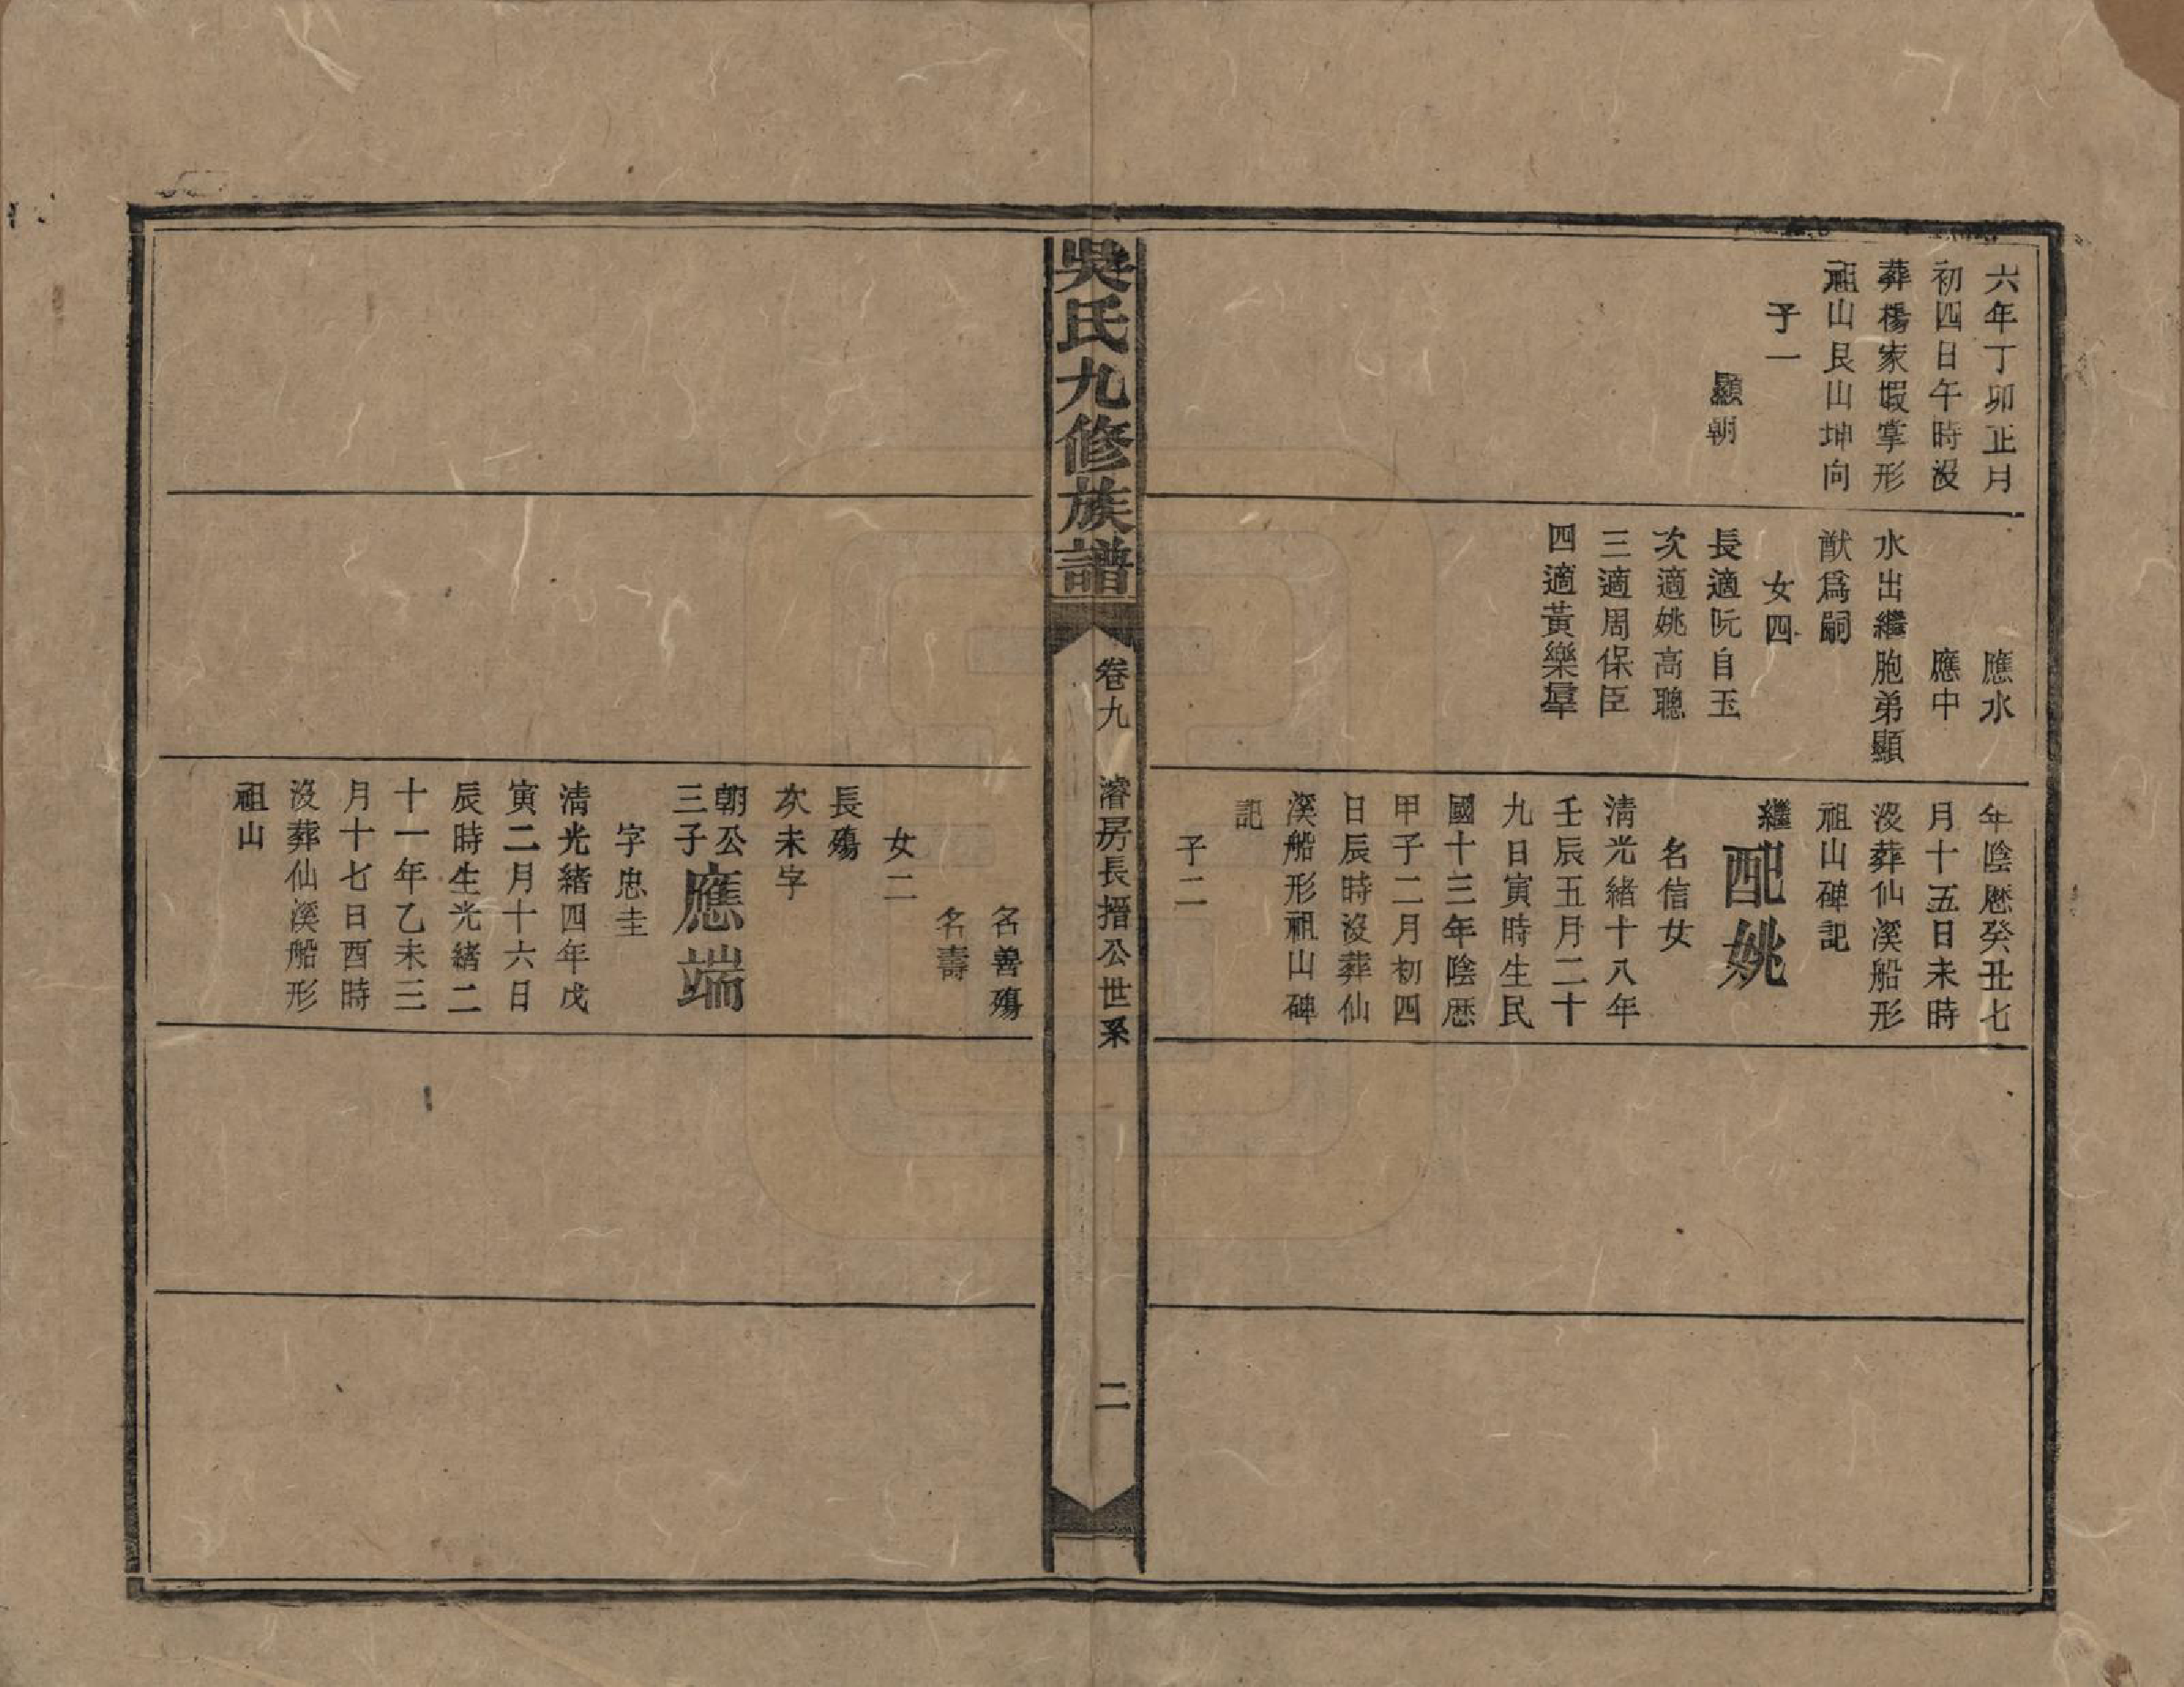 六年丁卯正月
初四日午時没
葬楊家塅掌形
祖山艮山坤向
子一
顯朝
應水
應中
水出繼胞弟顯
猷爲嗣
女四
長適阮自玉
次適姚高聰
三適周保臣
四適黃樂羣
年陰歷癸丑七
月十五日未時
沒葬仙溪船形
祖山碑記
繼配姚
名信女
清光緒十八年
壬辰五月二十
九日寅時生民
國十三年陰歷
甲子二月初四
日辰時沒葬仙
溪船形祖山碑
記
子二
吳氏九修族譜
卷九
濬房長搢公世系
二
名善殤
名壽
女二
長殤
次未字
朝公三子應端
字忠圭
清光緒四年戊
寅二月十六日
辰時生光緒二
十一年乙未三
月十七日酉時
沒葬仙溪船形
祖山